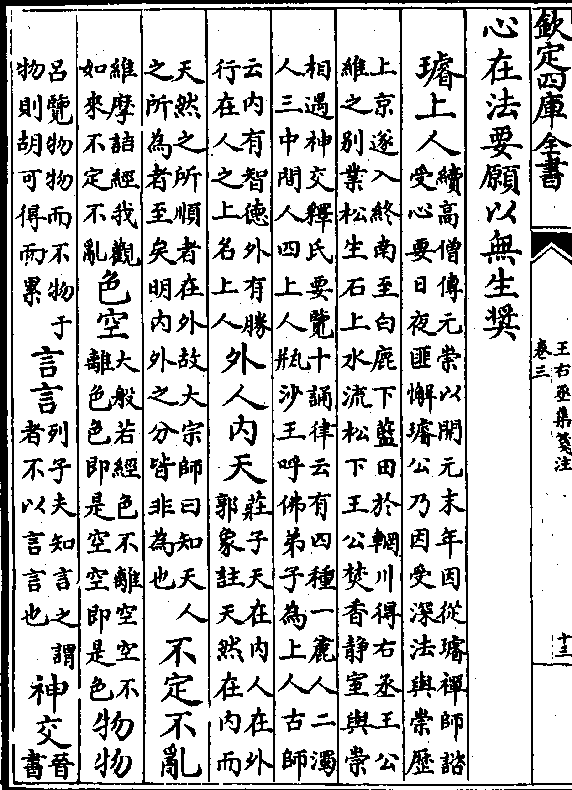 欽定四庫全書
王右丞集箋注
卷三
十三
心在法要願以無生奬
璿上人
續高僧傳元崇以開元末年因從璿禪師諮
受心要日夜匪懈璿公乃因受深法與崇歷
上京遂入終南至白鹿下藍田於輞川得右丞王公
維之别業松生石上水流松下王公焚香静室與崇
相遇神交釋氏要覽十誦律云有四種一麄人二濁
人三中間人四上人瓶沙王呼佛弟子為上人古師
云内有智徳外有勝
行在人之上名上人
外人内天
莊子天在内人在外
郭象註天然在内而
天然之所順者在外故大宗師曰知天人
之所為者至矣明内外之分皆非為也
不定不亂
維摩詰經我觀
如來不定不亂
色空
大般若經色不離空空不
離色色即是空空即是色
物物
呂覽物物而不物于
物則胡可得而累
言言
列子夫知言之謂
者不以言言也
神交
晉
書